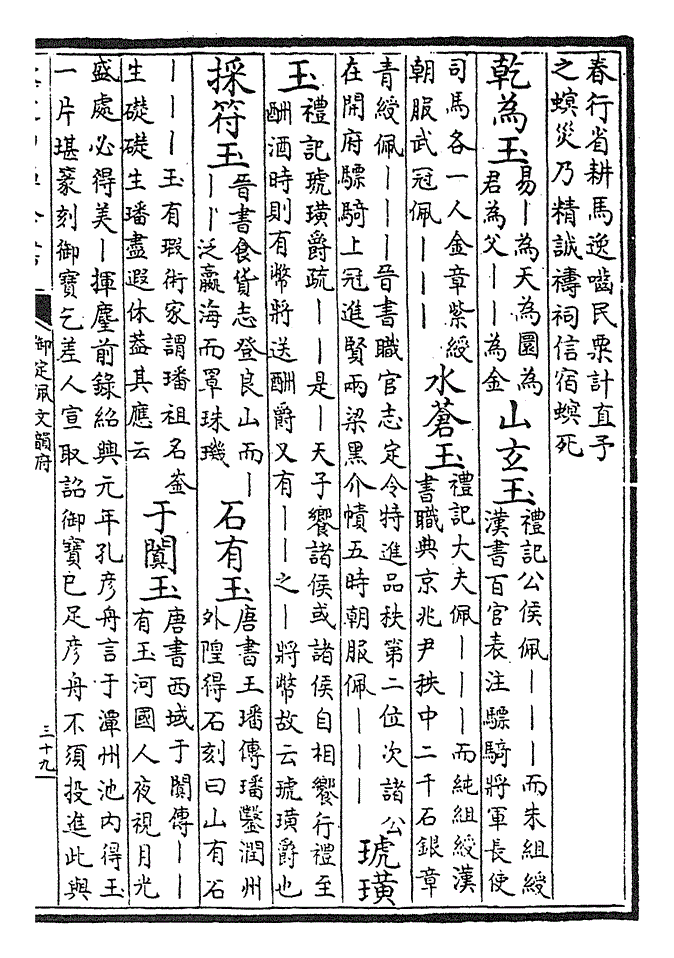 春行省耕馬逸嚙民粟計直予
之螟災乃精誠禱祠信宿螟死
乾為玉
易丨為天為圜為
君為父丨丨為金
山玄玉
禮記公侯佩丨丨丨而朱組綬
漢書百官表注驃騎將軍長使
司馬各一人金章紫綬
朝服武冠佩丨丨丨
水蒼玉
禮記大夫佩丨丨丨而純組綬漢
書職典京兆尹秩中二千石銀章
青綬佩丨丨丨晉書職官志定令特進品秩第二位次諸公
在開府驃騎上冠進賢兩梁黑介幘五時朝服佩丨丨丨
琥璜
玉
禮記琥璜爵疏丨丨是丨天子饗諸侯或諸侯自相饗行禮至
酬酒時則有幣將送酬爵又有丨丨之丨將幣故云琥璜爵也
採符玉
晉書食貨志登良山而丨
丨丨泛瀛海而罩珠璣
石有玉
唐書王璠傳璠鑿潤州
外隍得石刻曰山有石
丨丨丨玉有瑕術家謂璠祖名崟
生礎礎生璠盡遐休蓋其應云
于闐玉
唐書西域于闐傳丨丨
有玉河國人夜視月光
盛處必得美丨揮麈前錄紹興元年孔彥舟言于潭州池內得玉
一片堪篆刻御寶乞差人宣取詔御寶已足彥舟不須投進此與
御定佩文韻府
三十九